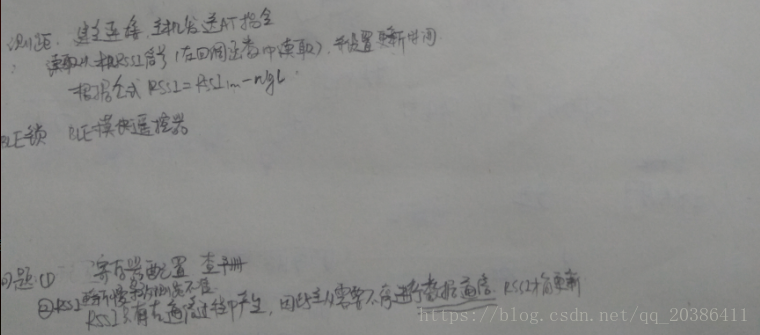 测距: 建立连接, 主机发送AT指令
读取从机RSSI信号(在回调函数中读取), 并设置更新时间
根据公式 RSSI = RSSI₁ₘ - nlgL
BLE锁 BLE模块遥控器
问题: ① 寄存器配置 查手册
② RSSI更新慢
RSSI只有在通信过程中产生, 因此主从需要不停进行数据通信, RSSI才有更新
https://blog.csdn.net/qq_20386411